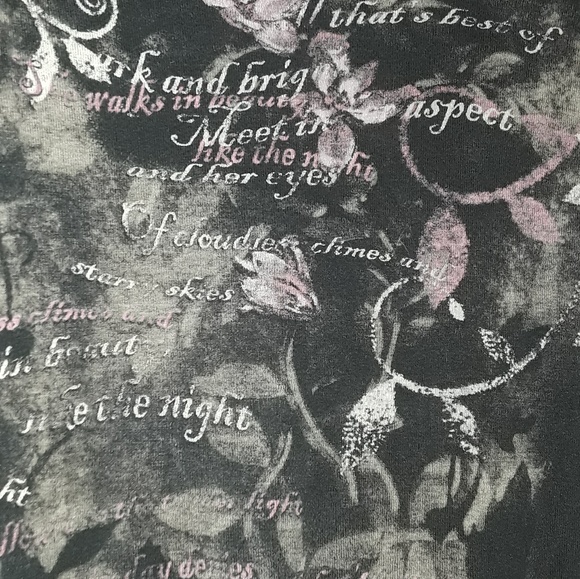 all that's best of
and brig
walks in beauty
aspect
Meet in
like the night
and her eyes
Of cloudless climes and
starry skies
ss climes and
in beaut
the night
ht
light
day denies